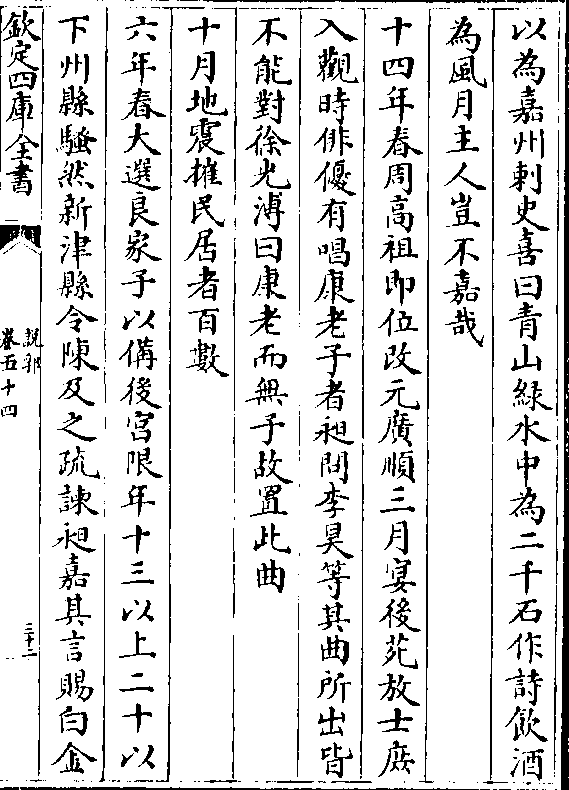 以為嘉州刺史喜曰青山緑水中為二千石作詩飲酒
為風月主人豈不嘉哉
十四年春周高祖即位改元廣順三月宴後苑放士庶
入觀時俳優有唱康老子者昶問李昊等其曲所出皆
不能對徐光溥曰康老而無子故置此曲
十月地震摧民居者百數
六年春大選良家子以備後宫限年十三以上二十以
下州縣騷然新津縣令陳及之疏諌昶嘉其言賜白金
欽定四庫全書
説郛
卷五十四
三十二